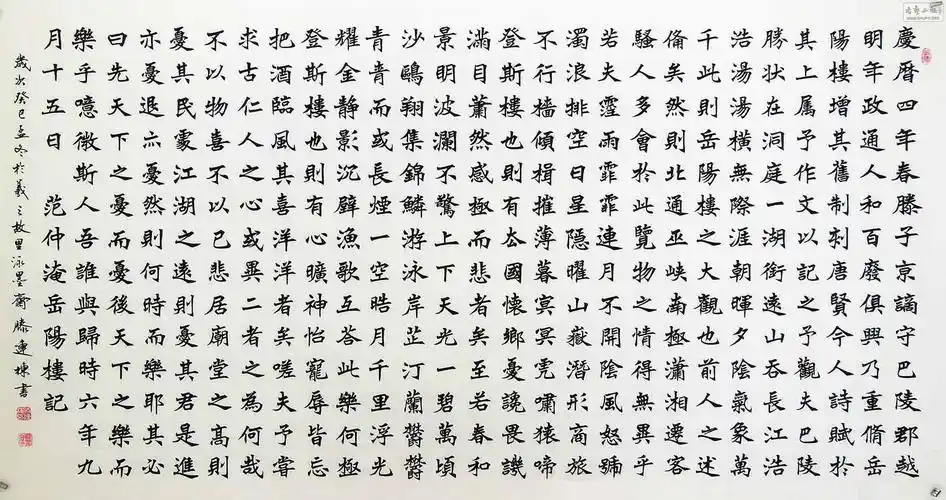 慶曆四年春滕子京謫守巴陵郡越
明年政通人和百廢俱興乃重脩岳
陽樓增其舊制刻唐賢今人詩賦於
其上属予作文以記之予觀夫巴陵
勝狀在洞庭一湖銜遠山吞長江浩
浩湯湯橫無際涯朝暉夕陰氣象萬
千此則岳陽樓之大觀也前人之述
備矣然則北通巫峽南極瀟湘遷客
騷人多會於此覽物之情得無異乎
若夫霪雨霏霏連月不開陰風怒號
濁浪排空日星隱曜山嶽潛形商旅
不行檣傾楫摧薄暮冥冥虎嘯猿啼
登斯樓也則有去國懷鄉憂讒畏譏
滿目蕭然感極而悲者矣至若春和
景明波瀾不驚上下天光一碧萬頃
沙鷗翔集錦鱗游泳岸芷汀蘭鬱鬱
青青而或長煙一空皓月千里浮光
耀金静影沉璧漁歌互答此樂何極
登斯樓也則有心曠神怡寵辱皆忘
把酒臨風其喜洋洋者矣嗟夫予嘗
求古仁人之心或異二者之為何哉
不以物喜不以己悲居廟堂之高則
憂其民處江湖之遠則憂其君是進
亦憂退亦憂然則何時而樂耶其必
曰先天下之憂而憂後天下之樂而
樂乎噫微斯人吾誰與歸時六年九
月十五日 范仲淹岳陽樓記
歲次癸巳孟冬於羲之故里泳墨齋滕連棟書